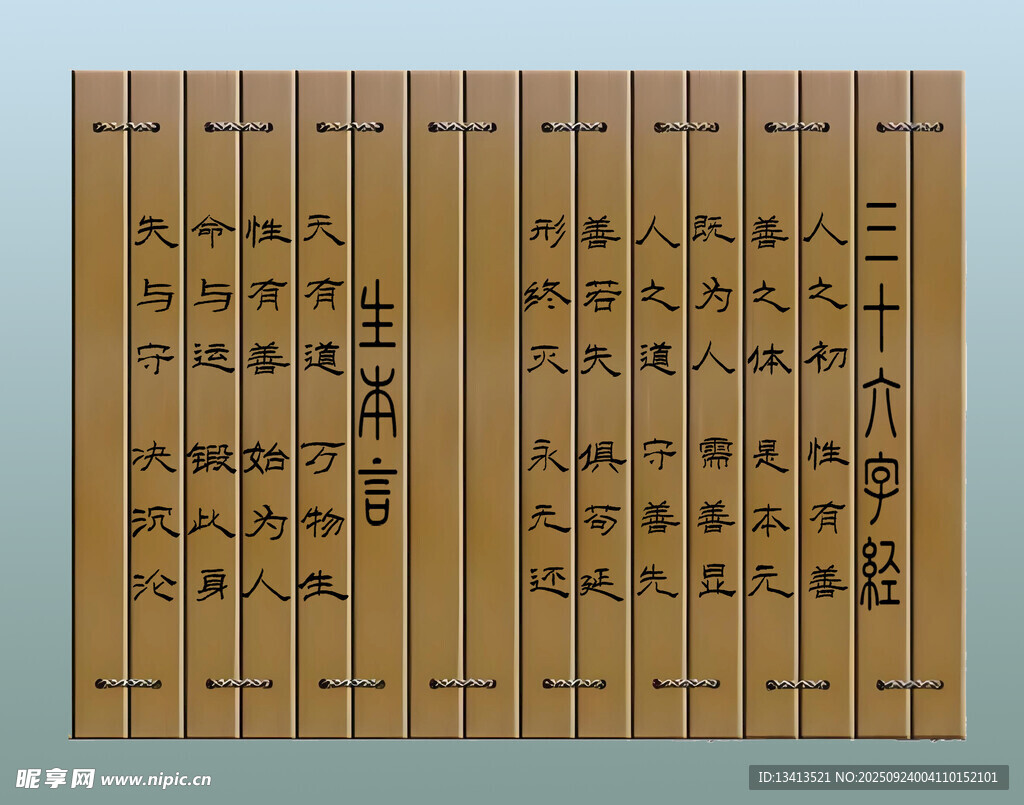 三十六字经
人之初 性有善
善之体 是本元
既为人 需善显
人之道 守善先
善若失 俱苟延
形终灭 永无还
生本言
天有道 万物生
性有善 始为人
命与运 锻此身
失与守 决沉沦
昵享网 www.nipic.cn
ID:13413521 NO:20250924004110152101